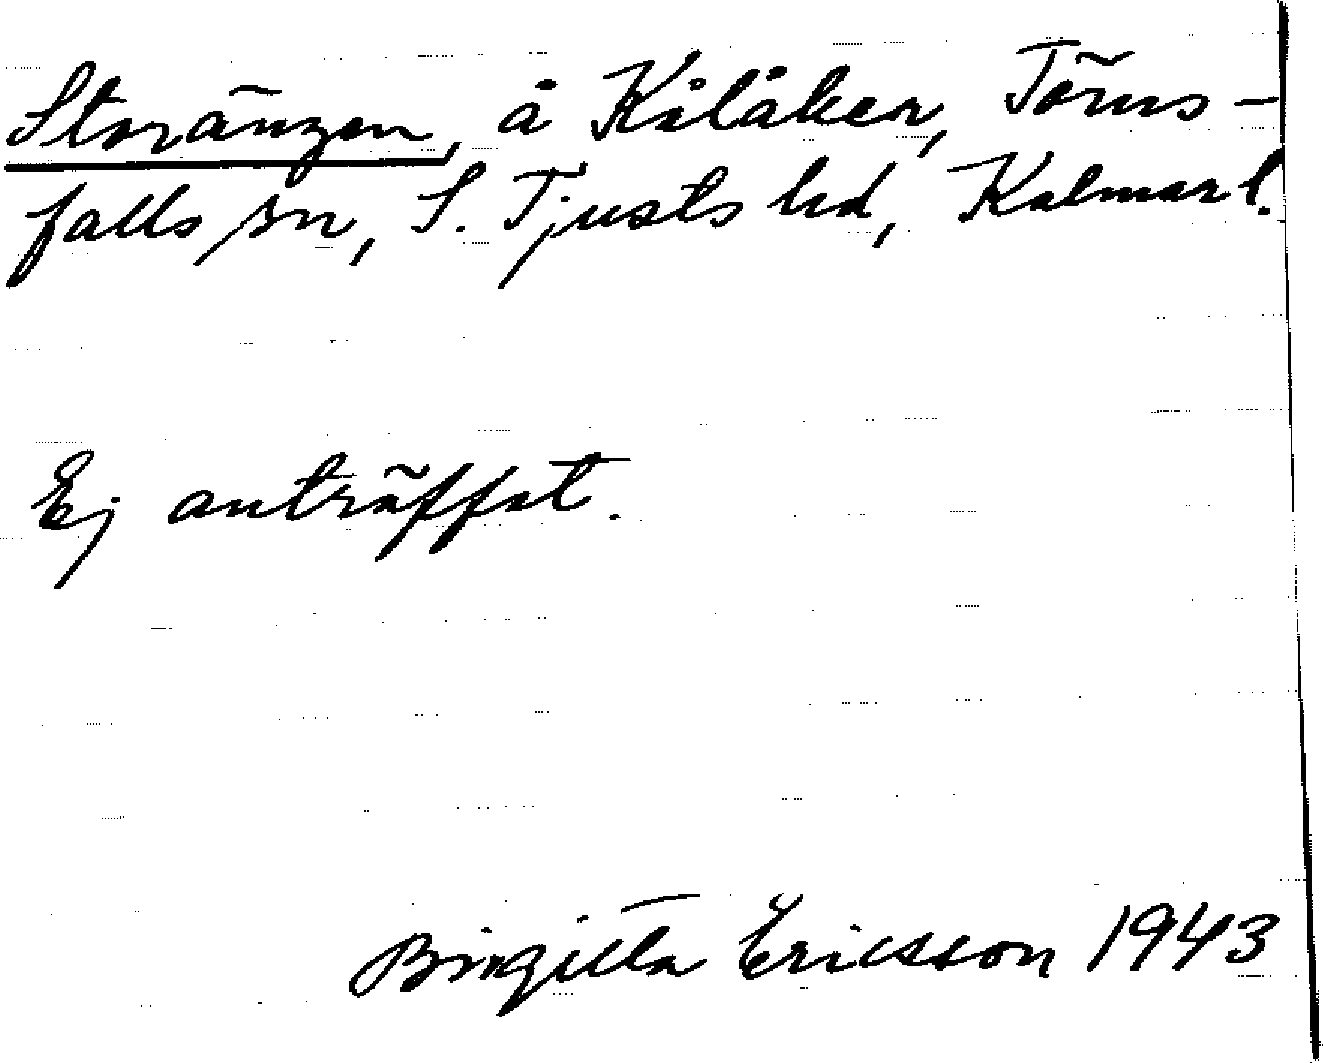 Storängen, å Kålåker, Törns-
falls sn, S. Tjusts hd, Kalmar l.
Ej anträffat.
Birgitta Ericsson 1943